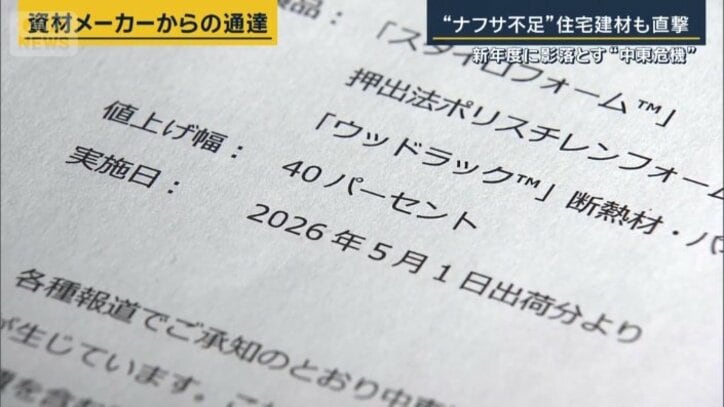 資材メーカーからの通達
“ナフサ不足”住宅建材も直撃
新年度に影落とす“中東危機”
品：「スタイロフォーム™」
押出法ポリスチレンフォーム
「ウッドラック™」断熱材・パ
値上げ幅： 40パーセント
実施日： 2026年5月1日出荷分より
各種報道でご承知のとおり中東
が生じています。